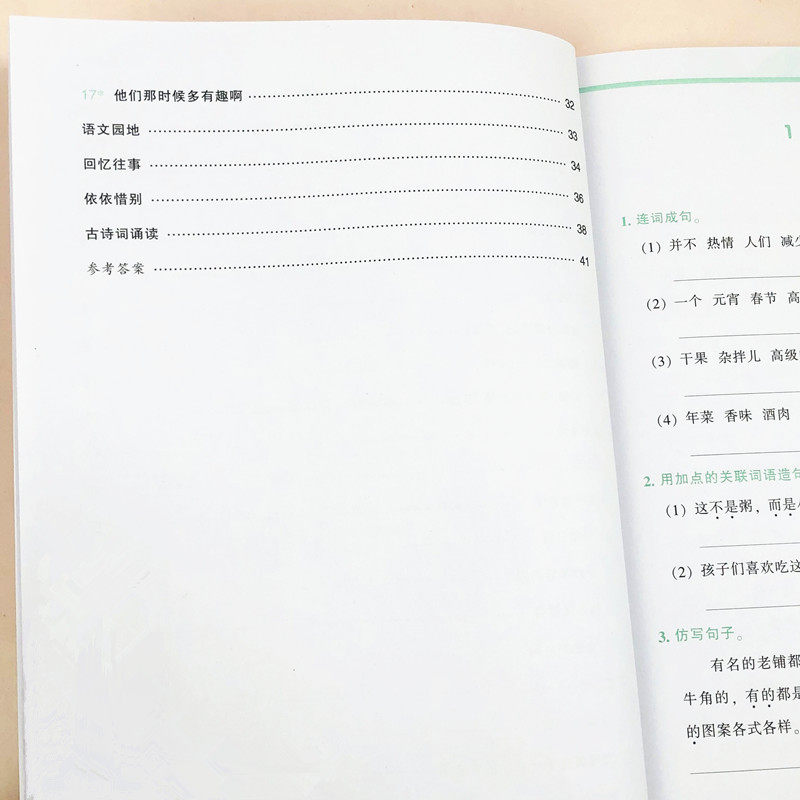 17* 他们那时候多有趣啊 ………… 32
语文园地 ………… 33
回忆往事 ………… 34
依依惜别 ………… 36
古诗词诵读 ………… 38
参考答案 ………… 41
1
1. 连词成句。
(1) 并不 热情 人们 减少
(2) 一个 元宵 春节 高
(3) 干果 杂拌儿 高级
(4) 年菜 香味 酒肉
2. 用加点的关联词语造句
(1) 这不是粥，而是
(2) 孩子们喜欢吃这
3. 仿写句子。
有名的老铺都
牛角的，有的都是
的图案各式各样。